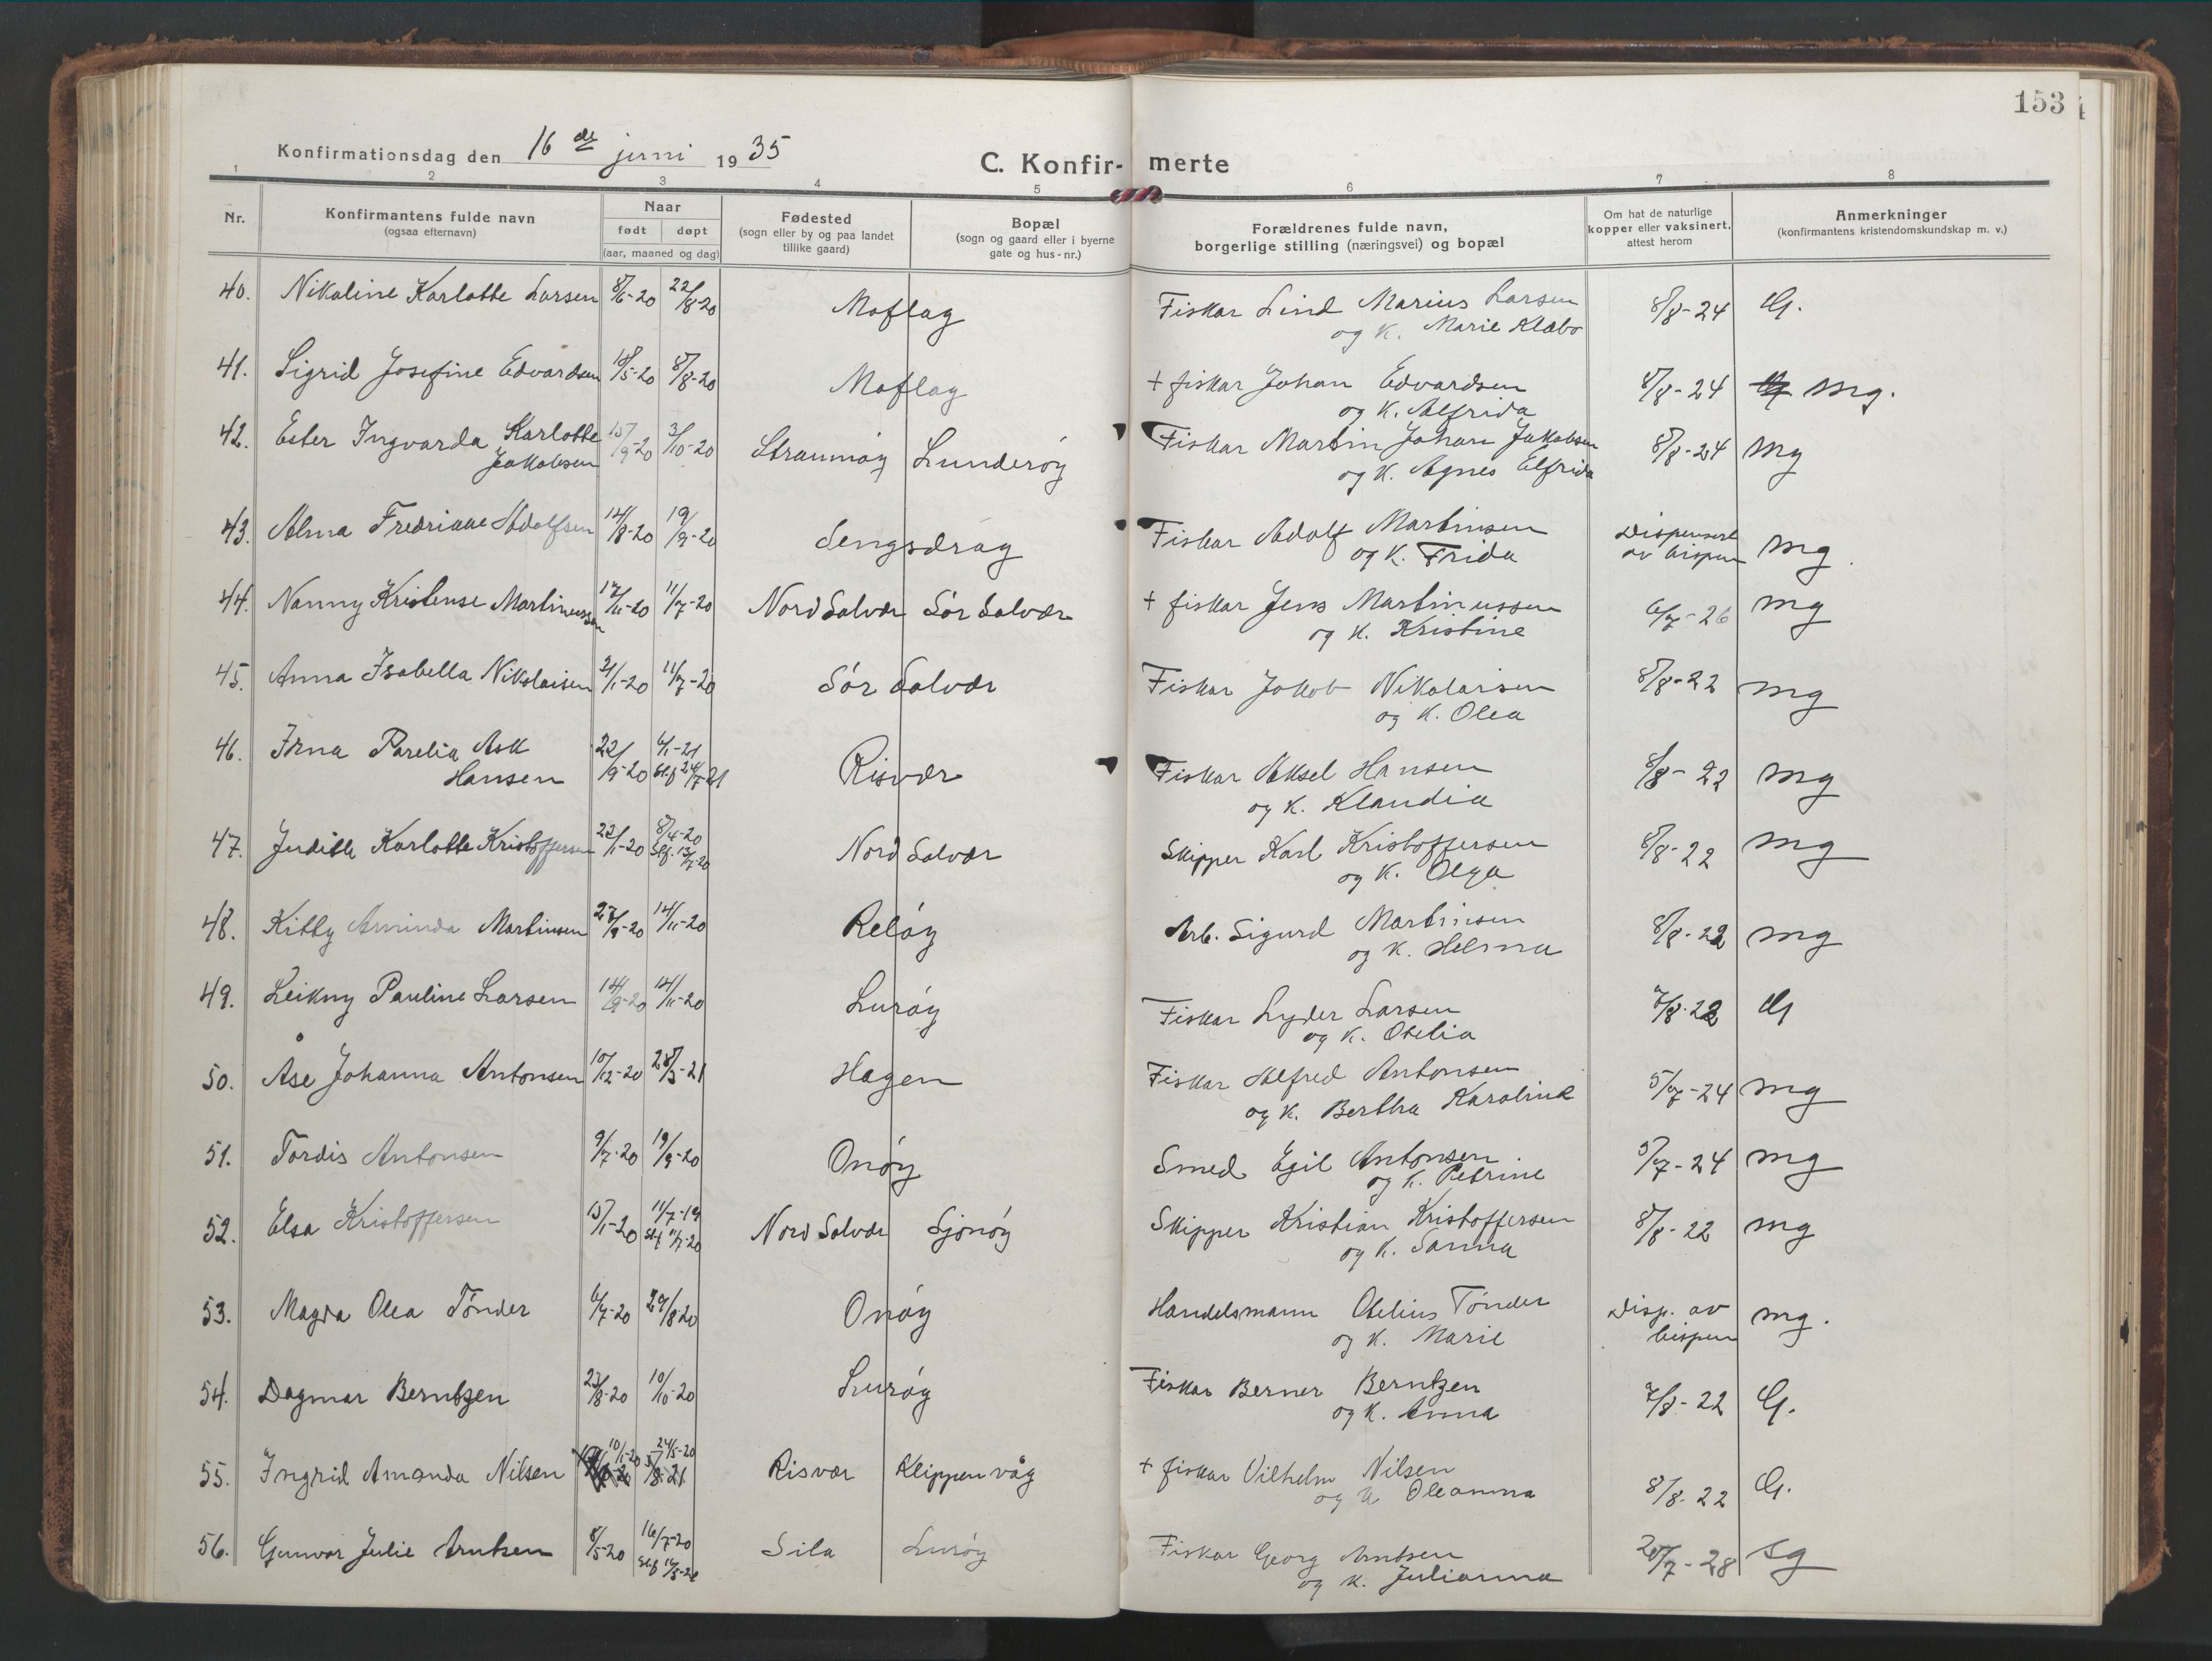 153
Konfirmationsdag den 16 de juni 1935
C. Konfir- merte
1 2 3 4 5 6 7 8
Nr.
Konfirmantens fulde navn
(ogsaa efternavn)
Naar
født døpt
(aar, maaned og dag)
Fødested
(sogn eller by og paa landet
tillike gaard)
Bopæl
(sogn og gaard eller i byerne
gate og hus-nr.)
Forældrenes fulde navn,
borgerlige stilling (næringsvei) og bopæl
Om hat de naturlige
kopper eller vaksinert,
attest herom
Anmerkninger
(konfirmantens kristendomskundskap m. v.)
40. Nikoline Karlotte Larsen 8/6-20 22/8-20 Moflag Fiskar Lind Marius Larsen 8/8-24 G.
og K. Marie Klæbo
41. Sigrid Josefine Edvardsen 18/5-20 8/8-20 Moflag + fiskar Johan Edvardsen 8/8-24 mg.
og K. Alfrida
42. Ester Ingvarda Karlotte 15/9-20 3/10-20 Straumøy Lunderøy Fiskar Martin Johan Jakobsen 8/8-24 mg
Jakobsen og K. Agnes Elfrida
43. Alma Fredrikke Adolfsen 14/8-20 19/9-20 Sengsdrag Fiskar Adolf Martinsen Dispensert mg
og K. Frida av bispen
44. Nanny Kristense Martinussen 11/7-20 Nord Solvær Sør Solvær + fiskar Jens Martinussen 6/7-26 mg
og K. Kristine
45. Anna Isabella Nikolaisen 21/1-20 11/7-20 Sør Solvær Fiskar Jakob Nikolaisen 8/8-22 mg
og K. Olea
46. Irna Parelia Ask 22/9-20 6/1-21 Risvær Fiskar Aksel Hansen 8/8-22 mg
Hansen St.f 24/7-21 og K. Klaudia
47. Judith Karlotte Kristoffersen 22/1-20 8/4-20 Nord Solvær Skipper Karl Kristoffersen 8/8-22 mg
St.f. 13/7-20 og K. Olga
48. Kitty Aminda Martinsen 27/9-20 14/11-20 Reløy Arb. Sigurd Martinsen 8/8-22 mg
og K. Helma
49. Leikny Pauline Larsen 14/9-20 14/11-20 Lurøy Fiskar Lyder Larsen 7/8-22 G
og K. Otelia
50. Åse Johanna Antonsen 10/12-20 28/3-21 Hagen Fiskar Alfred Antonsen 5/7-24 mg
og K. Bertha Karoline
51. Tordis Antonsen 9/7-20 19/9-20 Onøy Smed Egil Antonsen 5/7-24 mg
og K. Petrine
52. Elsa Kristoffersen 15/1-20 Nord Solvær Sjonøy Skipper Kristian Kristoffersen 8/8-22 mg
St.f 11/7-20 og K. Sanna
53. Magda Olea Tønder 6/7-20 29/8-20 Onøy Handelsmann Otelius Tønder Disp. av mg.
og K. Marie bispen
54. Dagmar Berntzen 23/8-20 10/10-20 Lurøy Fiskar Berner Berntzen 7/8-22 G.
og K. Anna
55. Ingrid Amanda Nilsen 10/1-20 24/5-20 Risvær Klippenvåg + fiskar Vilhelm Nilsen 8/8-22 G.
og K Oleanna
56. Gunvor Julie Arntsen 8/5-20 16/7-20 Sila Lurøy Fiskar Georg Arntsen 20/7-28 sg
og K. Julianna